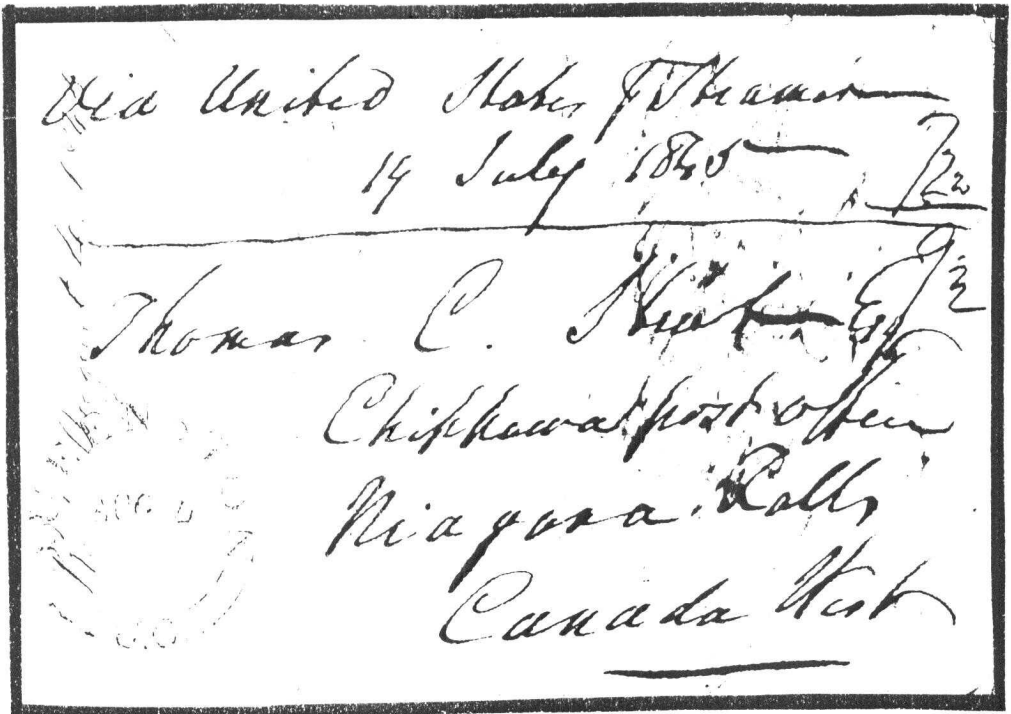 Via United States p Steamer
19 July 1845
Thomas C. Street Esq
Chippawa post office
Niagara Falls
Canada West
AUG 4